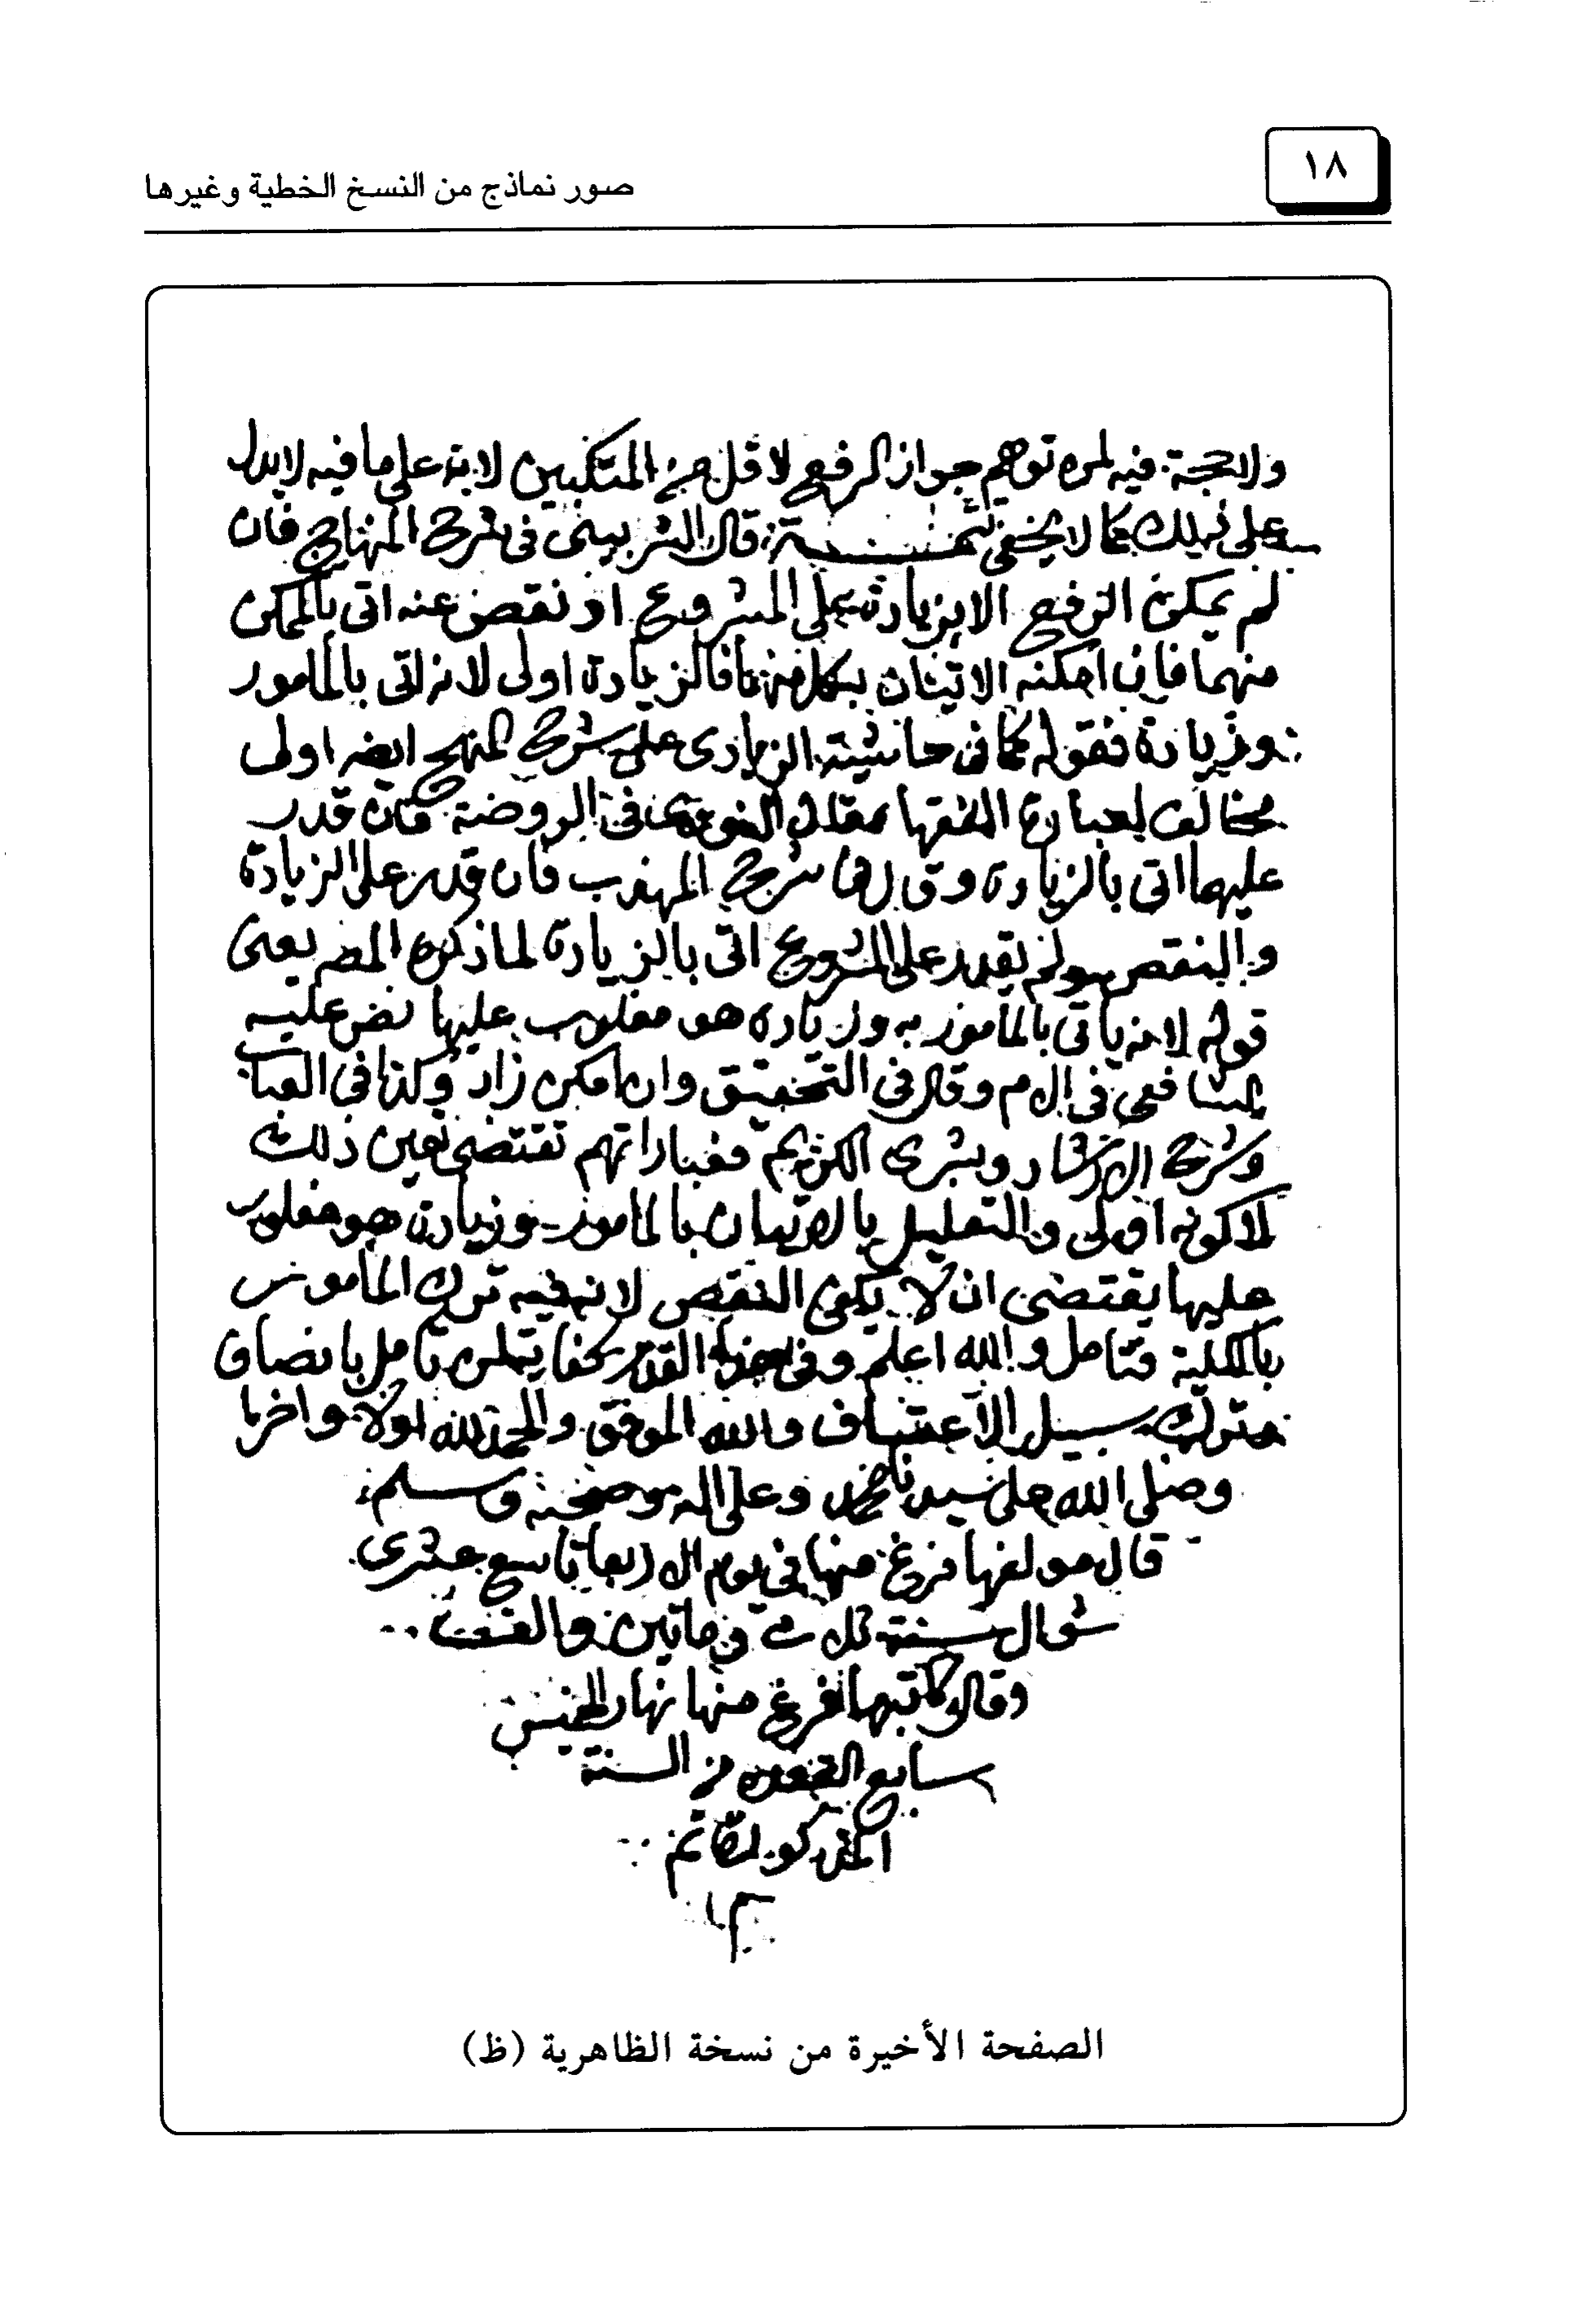 ١٨
صور نماذج من النسخ الخطية وغيرها
ولا حجة فيه لمن توهم جواز الرفع لا قل من المنكبين لانه على ما فيه لا يدل
على ذلك كما لا يخفى تتمــة قال الشربيني في شرح المنهاج فان
لم يمكن الرفع الا بزيادة على المشروع او نقص عنه اتى بالممكن
منهما فان امكنه الاتيان بكل منهما فالزيادة اولى لانه اتى بالمامور
وزيادة فقوله كما في حاشية الزيادي على شرح المنهج ايضا اولى
مخالف لعبارة الفقها فقال النووي في الروضة فان قدر
عليهما اتى بالزيادة وقال في شرح المهذب فان قدر على الزيادة
والنقص ولم يقدر على المشروع اتى بالزيادة لما ذكره المص يعني
قوله لانه ياتي بالمامور به وزيادة هو مغلوب عليها نص عليه
الشافعي في الام وقال في التحقيق وان امكن زاد وكذا في العباب
وشرح الارشاد وبشرى الكريم فعباراتهم تقتضي تعين ذلك
لا كونه اولى والتعليل بالاتيان بالمامور وزيادة هو مغلوب
عليها يقتضي ان لا يكفي النقص لانه فيه ترك المامور
بالكلية فتامل والله اعلم وفي هذا القدر كفاية لمن تامل بانصاف
وترك سبيل الاعتساف والله الموفق والحمد لله اولا واخرا
وصلى الله على سيدنا محمد وعلى اله وصحبه وسلم
قال مولفها فرغ منها في يوم الاربعا تاسع عشري
شوال سنة ومايتين والف
وقال كاتبها فرغ منها نهار الخميس
سابع القعده من السنة
المذكورة تم
م
الصفحة الأخيرة من نسخة الظاهرية (ظ)